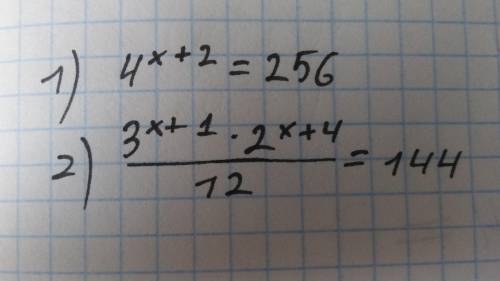 1) 4^{x+2} = 256
2) \frac{3^{x+1} \cdot 2^{x+4}}{12} = 144